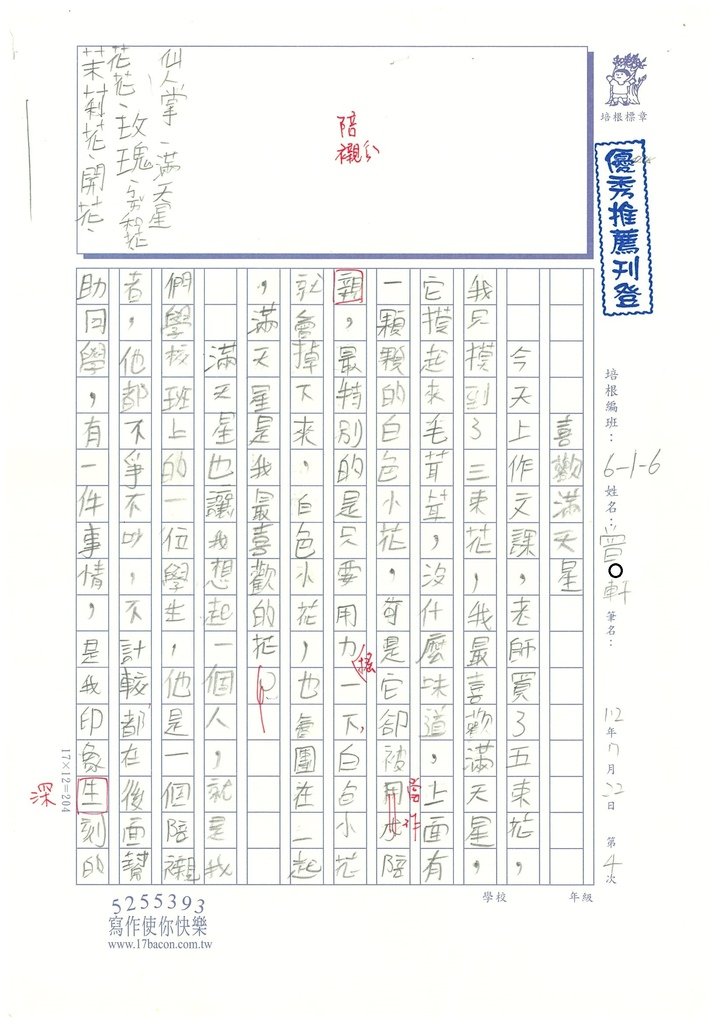 培根標章
優秀推薦刊登
培根編班：6-1-6 姓名：曾○軒 筆名： 112年7月22日 第4次
學校 年級
陪襯
仙人掌、滿天星
玫瑰、
茉莉花、開花、
喜歡滿天星
今天上作文課，老師買了五束花，
我只摸到了三束花，我最喜歡滿天星，
它摸起來毛茸茸，沒什麼味道，上面有
一顆顆的白色小花，可是它卻被用來陪
當作
親，最特別的是只要用力一下，白色小花
搖
就會掉下來，白色小花，也會團在一起
，滿天星是我最喜歡的花
滿天星也讓我想起一個人，就是我
們學校班上的一位學生，他是一個陪襯
者，他都不爭不吵，不計較都在後面幫
助同學，有一件事情，是我印象生刻的
深
17×12=204
5255393
寫作使你快樂
www.17bacon.com.tw